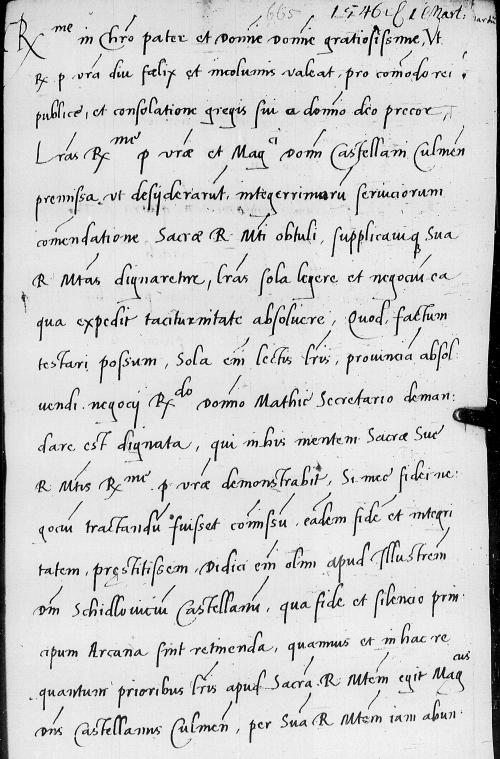 665 1546 11 Marti
Rx me in Chrō pater et Domīe Domīe gratiosissime, Vt
Rx p. vrā diu fœlix et incolumis valeat, pro comōdo rei
publice, et consolatione gregis sui a domīo deo precor,
Lrās Rx me p vrāe et Mag ci Domī Castellani Culmēn
premissa vt desyderarūt, integerrimarū seruiciorum
comēndatione Sacræ R Mti obtuli, supplicauiq Sua
R Mtās dignaretur, lrās sola legere et negociū ea
qua expedit taciturnitate absoluere, Quod factum
testari possum, Sola em̄ lectis lrīs, prouinciā absol:
uendi negocij Rx do Domīo Mathie Secretario deman:
dare est dignata, qui in his mentem Sacræ Sue
R Mtīs Rx me p vrāe demonstrabit, Si mee fidei ne:
gociū tractandū fuisset comīssū, eādem fidē et integri
tatem, pręstitissem, Didici em̄ olim apud Illustrēm
Dm̄ Schidlouiciū Castellanū, qua fide et silencio prin:
cipum Arcana sint retinenda, quamuis et in hac re
quantum prioribus lrīs apud Sacrā R Mtēm egit Mag cus
Dn̄s Castellanus Culmēn, per Suā R Mtēm iam abun: